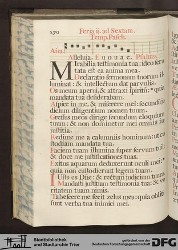 Feria ii. ad Sextam.
Temp. Pasch.
Alleluja. E u o u a e. Psalm.
Mirabilia testimonia tua: ideo scru-
tata est ea anima mea.
Declaratio sermonum tuorum il-
luminat: & intellectum dat parvulis.
Os meum aperui, & attraxi spiritum: quia
mandata tua desiderabam.
Aspice in me, & miserere mei: secundum
judicium diligentium nomen tuum.
Gressus meos dirige secundum eloquium
tuum: & non dominetur mei omnis in-
justitia.
Redime me a calumniis hominum: ut cu-
stodiam mandata tua.
Faciem tuam illumina super servum tuum:
& doce me justificationes tuas.
Exitus aquarum deduxerunt oculi mei:
quia non custodierunt legem tuam.
Justus es Domine: & rectum judicium tuum.
Mandasti justitiam testimonia tua: & veri-
tatem tuam nimis.
Tabescere me fecit zelus meus: quia obliti
sunt verba tua inimici mei.
Stadtbibliothek
und Stadtarchiv Trier
gefördert von der
Deutschen Forschungsgemeinschaft
DFG